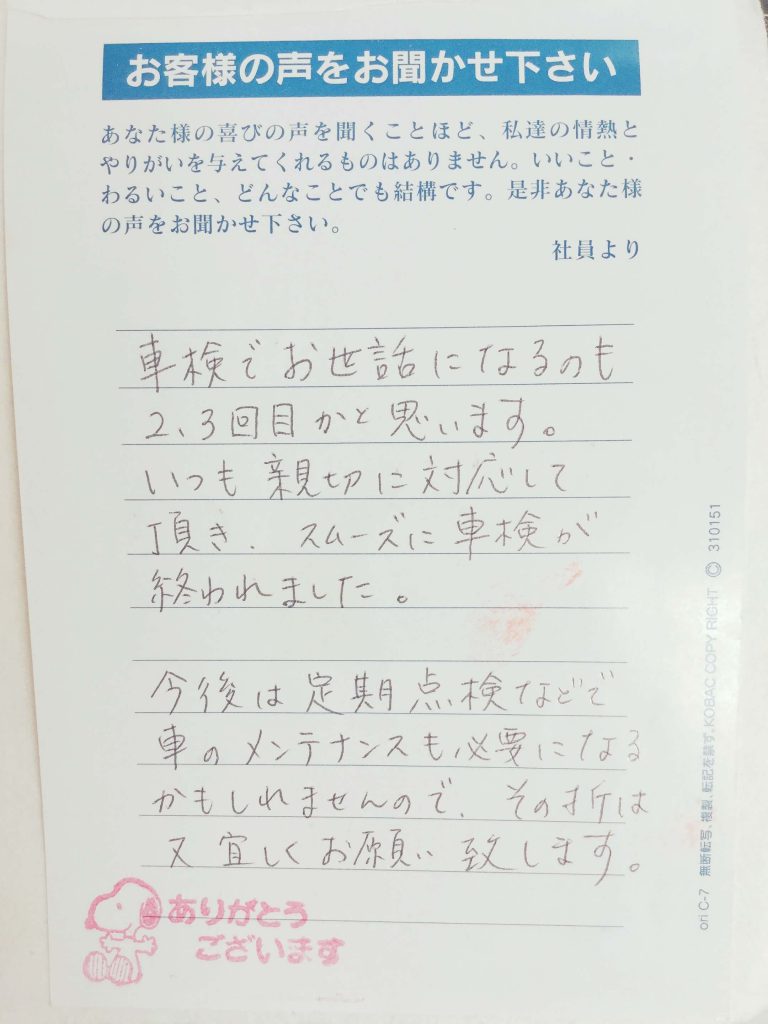 お客様の声をお聞かせ下さい
あなた様の喜びの声を聞くことほど、私達の情熱と
やりがいを与えてくれるものはありません。いいこと・
わるいこと、どんなことでも結構です。是非あなた様
の声をお聞かせ下さい。
社員より
車検でお世話になるのも
2、3回目かと思います。
いつも親切に対応して
頂き、スムーズに車検が
終われました。
今後は定期点検などで
車のメンテナンスも必要になる
かもしれませんので、その折は
又宜しくお願い致します。
ありがとう
ございます
ori C-7 無断転写、複製、転記を禁ず。KOBAC COPY RIGHT © 310151